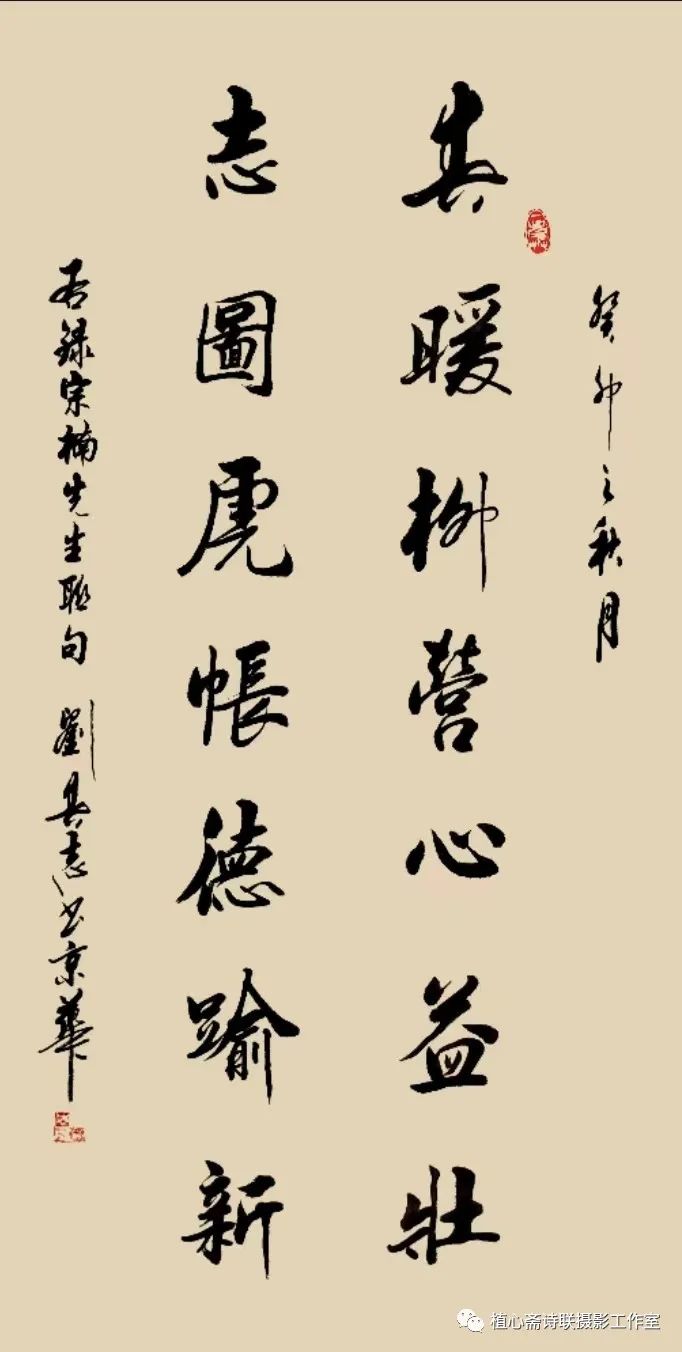 癸卯之秋月
其暖柳營心益壯
志圖虎帳德踰新
右録宗楠先生联句 劉其志书京華
植心斋诗联摄影工作室